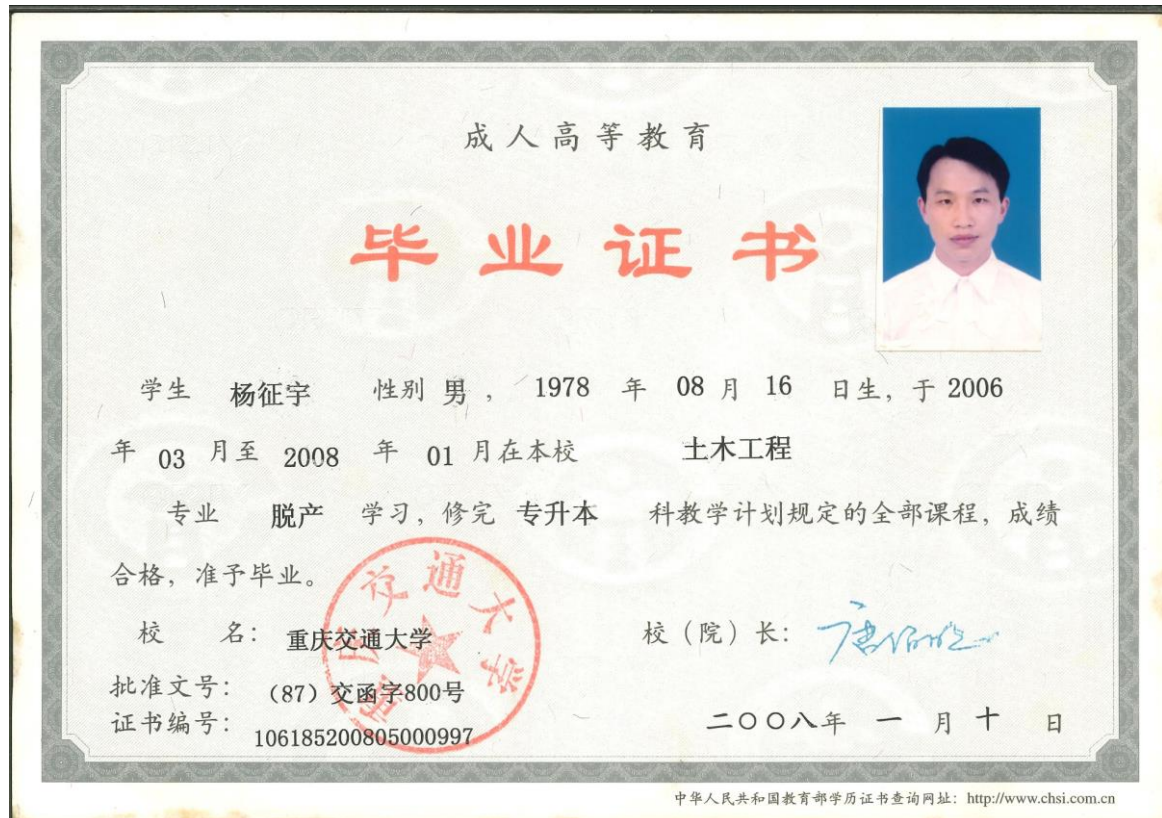 成人高等教育
毕业证书
学生 杨征宇 性别 男 ， 1978 年 08 月 16 日生，于 2006
年 03 月至 2008 年 01 月在本校 土木工程
专业 脱产 学习，修完 专升本 科教学计划规定的全部课程，成绩
合格，准予毕业。
重庆交通大学
校 名： 重庆交通大学 校（院）长：
批准文号： （87）交函字800号
证书编号： 106185200805000997
二〇〇八年 一 月 十 日
中华人民共和国教育部学历证书查询网址：http://www.chsi.com.cn